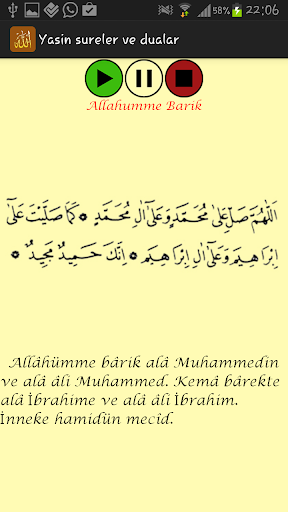 58% 22:06
Yasin sureler ve dualar
Allahumme Barik
اَللّٰهُمَّ صَلِّ عَلٰى مُحَمَّدٍ وَعَلٰى اٰلِ مُحَمَّدٍ ۞ كَمَا صَلَّيْتَ عَلٰى
اِبْرَاهِيمَ وَعَلٰى اٰلِ اِبْرَاهِيمَ ۞ اِنَّكَ حَمِيدٌ مَجِيدٌ ۞
Allâhümme bârik alâ Muhammedin
ve alâ âli Muhammed. Kemâ bârekte
alâ İbrahime ve alâ âli İbrahim.
İnneke hamidün mecîd.